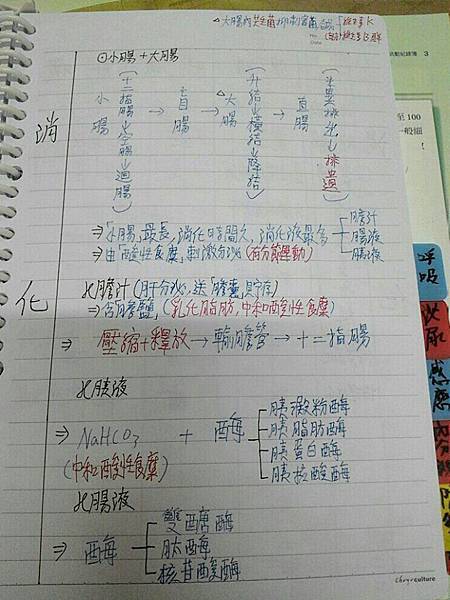 △大腸內共生菌抑制害菌
維生素K
維生素B群
No.
Date
⊙小腸+大腸
消化
小腸(十二指腸→空腸→迴腸)→盲腸→△大腸(升結→橫結→降結)→直腸(半糞排出→排遺)
⇒小腸,最長,消化時間久,消化液最多
膽汁
腸液
胰液
⇒由酸性食糜,刺激分泌(有分節運動)
膽汁(肝分泌,送「膽囊」貯存)
⇒含膽鹽(乳化脂肪,中和酸性食糜)
⇒壓縮+釋放→輸膽管→十二指腸
胰液
⇒NaHCO3 + 酶
(中和酸性食糜)
胰澱粉酶
胰脂肪酶
胰蛋白酶
胰核酸酶
腸液
⇒酶
雙醣酶
肽酶
核苷酸酶
呼吸
泌尿
感應
內分泌
3
至 100
一般細
culture